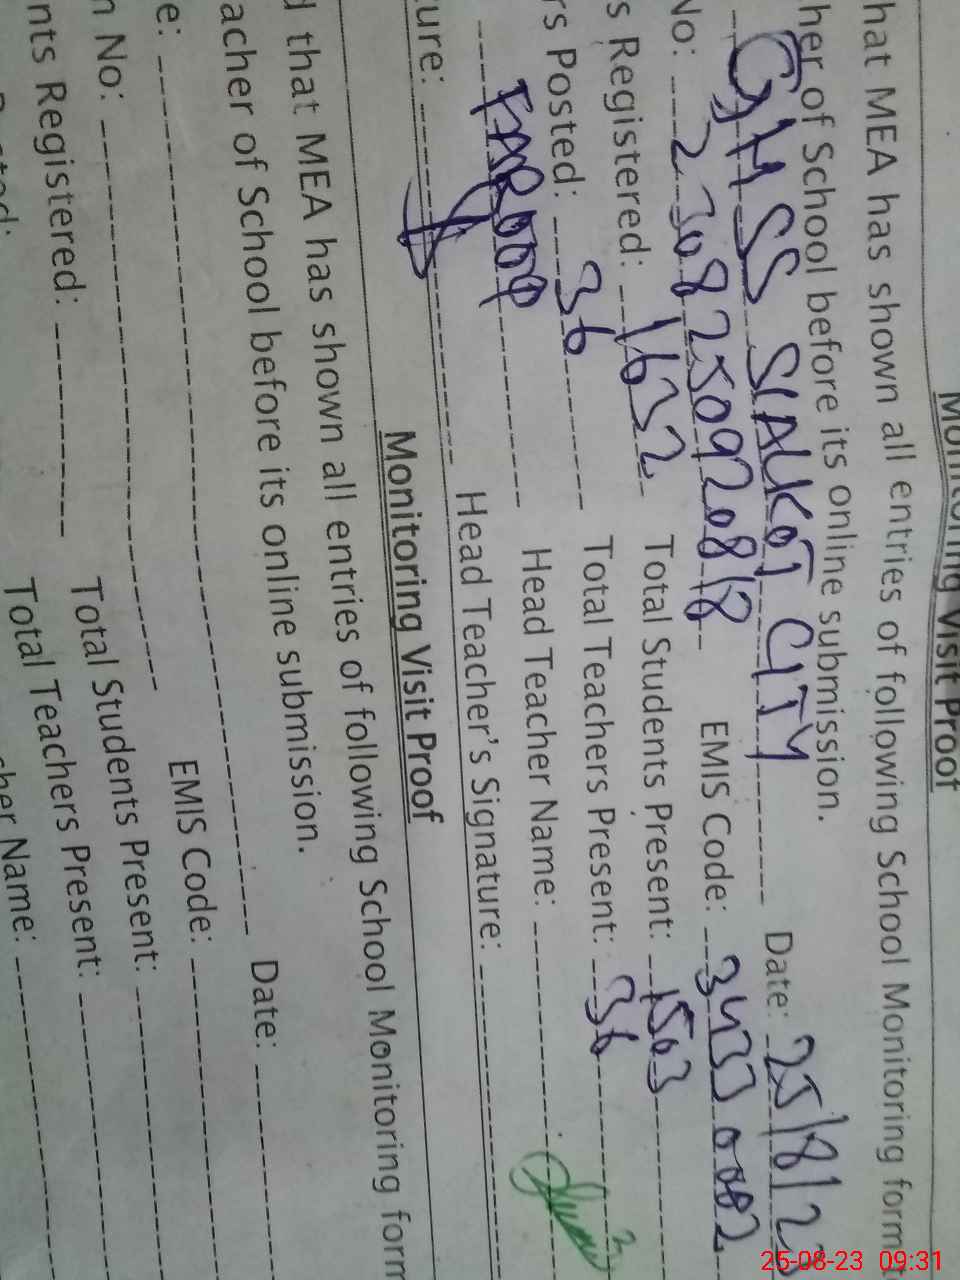 Monitoring Visit Proof
hat MEA has shown all entries of following School Monitoring form
her of School before its online submission.
GHSS SIALKOT CITY Date: 25/8/2
No: 2308250920818 EMIS Code: 34330082
s Registered: 1632 Total Students Present: 1503
rs Posted: 36 Total Teachers Present: 36
Head Teacher Name:
ture: Head Teacher's Signature:
Monitoring Visit Proof
d that MEA has shown all entries of following School Monitoring form
acher of School before its online submission.
e: Date:
n No: EMIS Code:
nts Registered: Total Students Present:
Total Teachers Present:
cher Name:
25-08-23 09:31